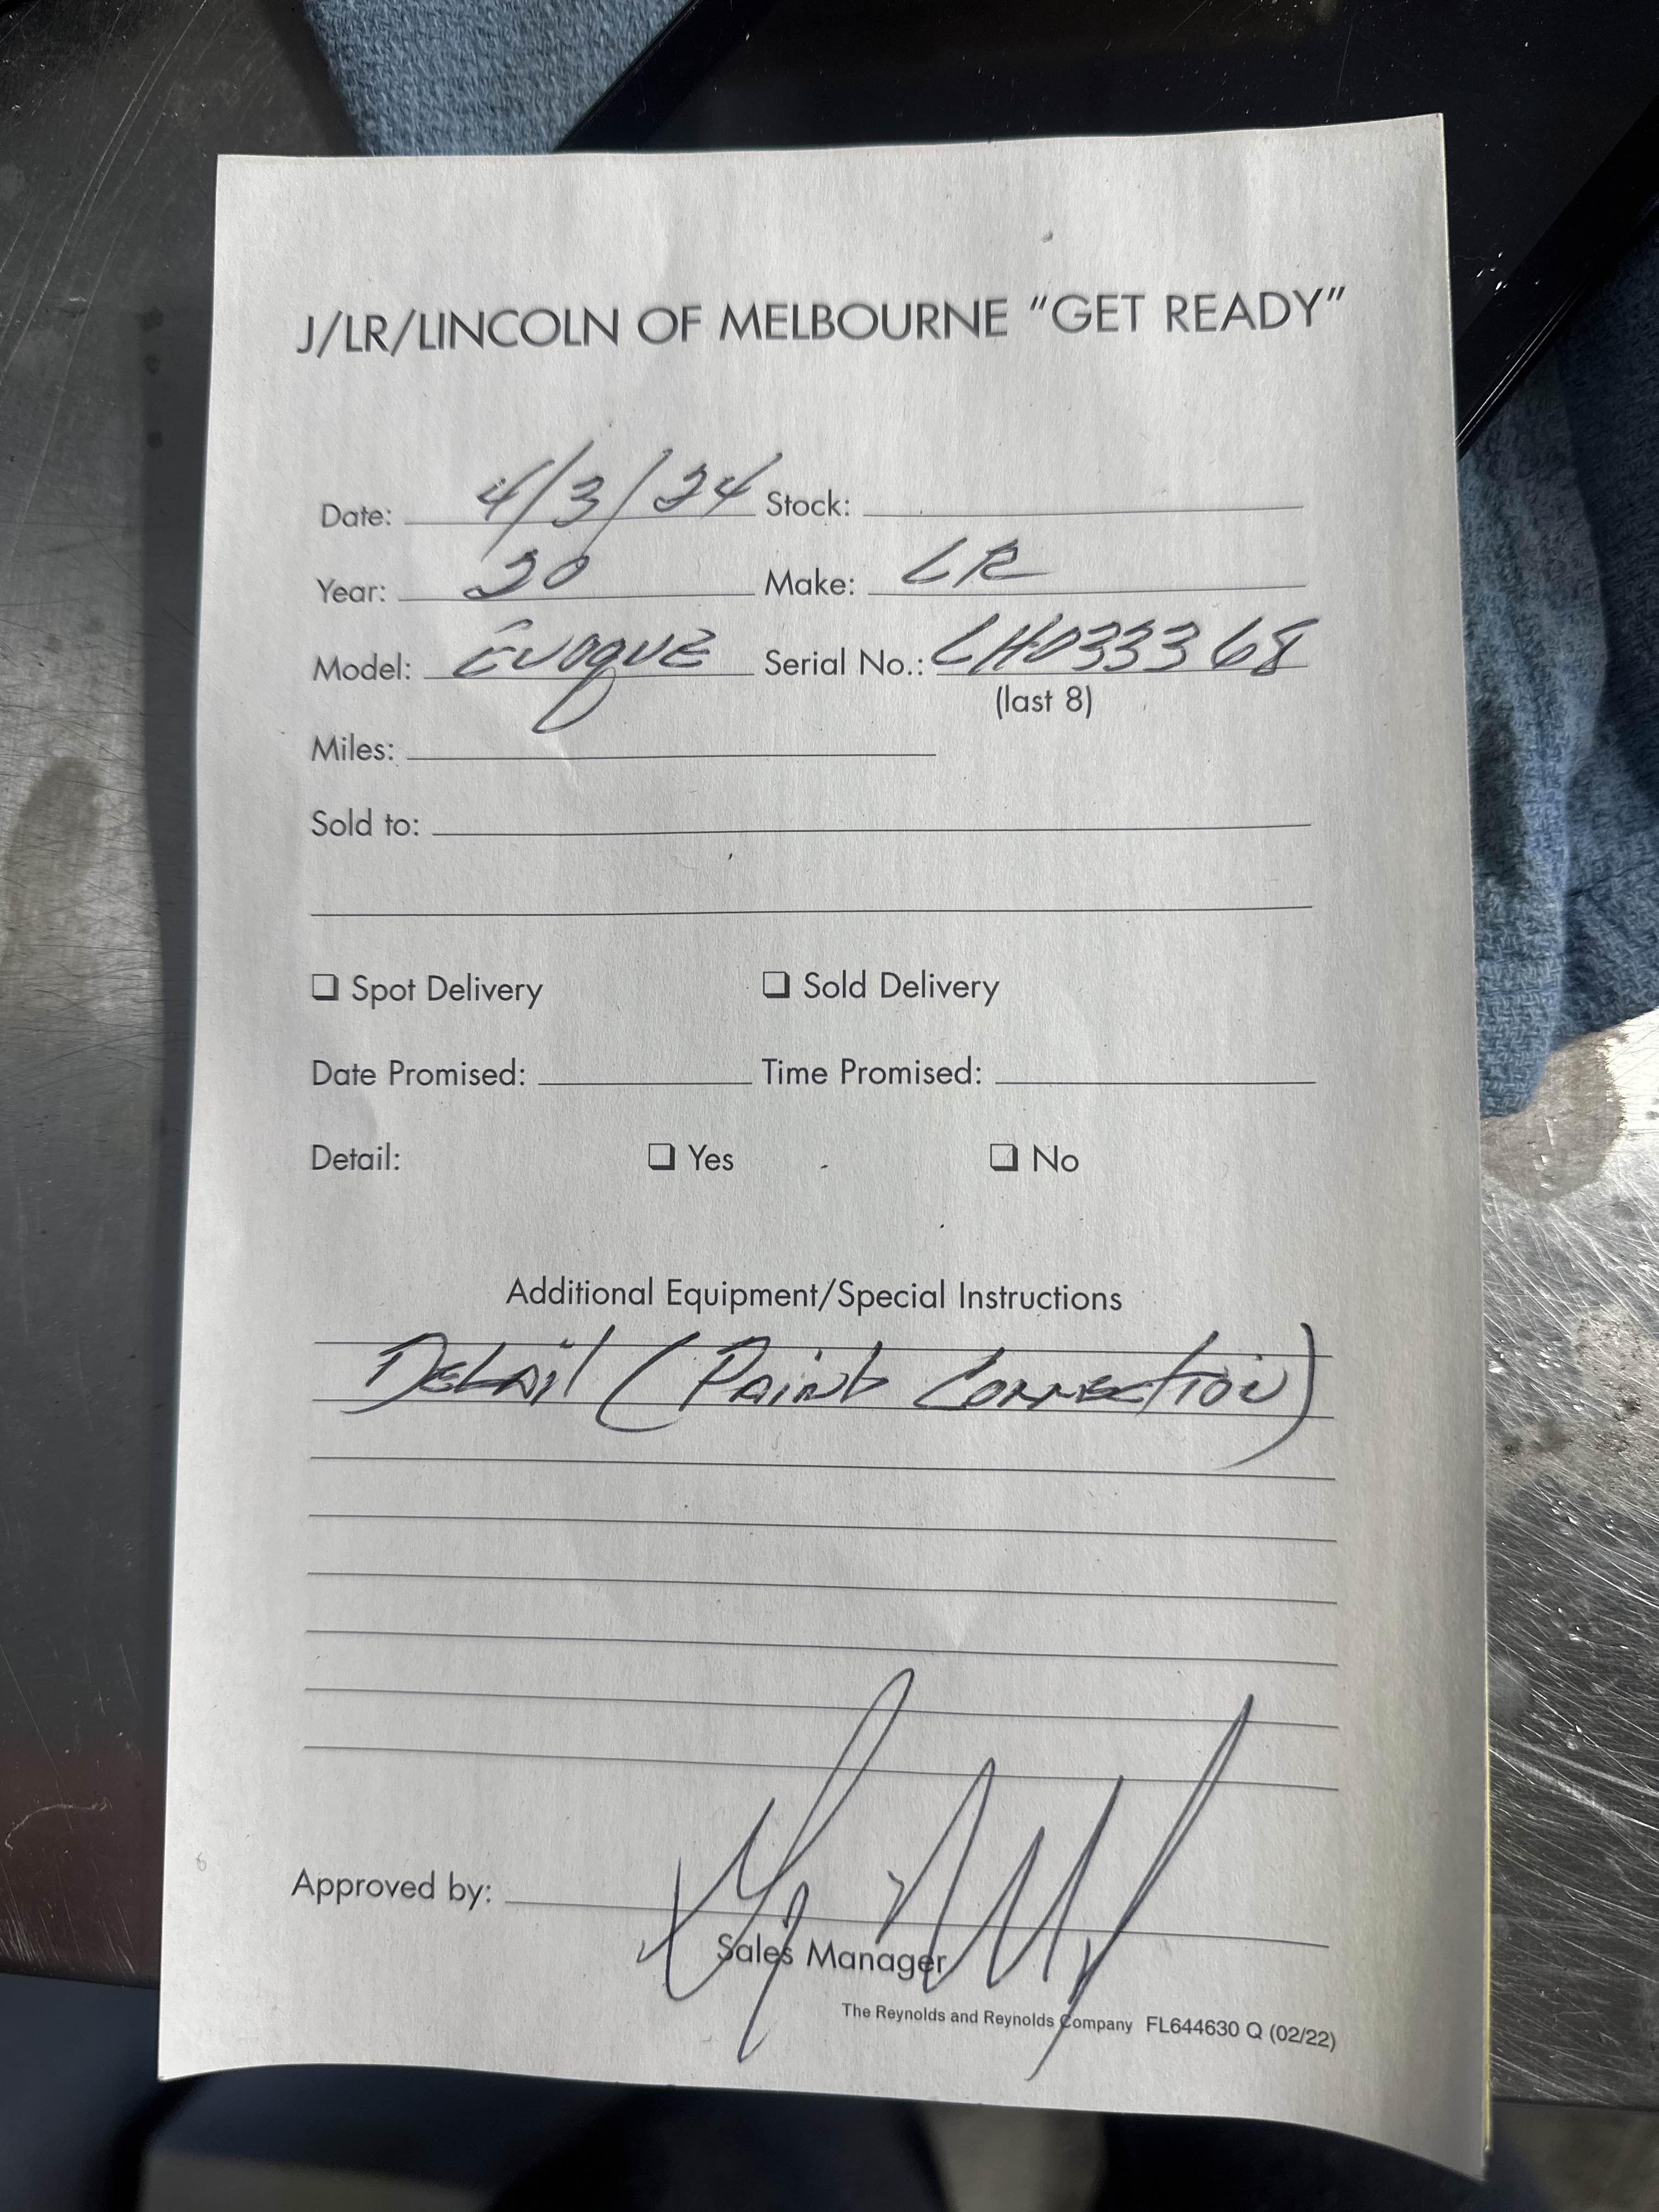 J/LR/LINCOLN OF MELBOURNE “GET READY”
Date: 4/3/24 Stock:
Year: 20 Make: LR
Model: EVOQUE Serial No.: LH033368
(last 8)
Miles:
Sold to:
Spot Delivery Sold Delivery
Date Promised: Time Promised:
Detail: Yes No
Additional Equipment/Special Instructions
Detail (Paint Correction)
Approved by:
Sales Manager
The Reynolds and Reynolds Company FL644630 Q (02/22)